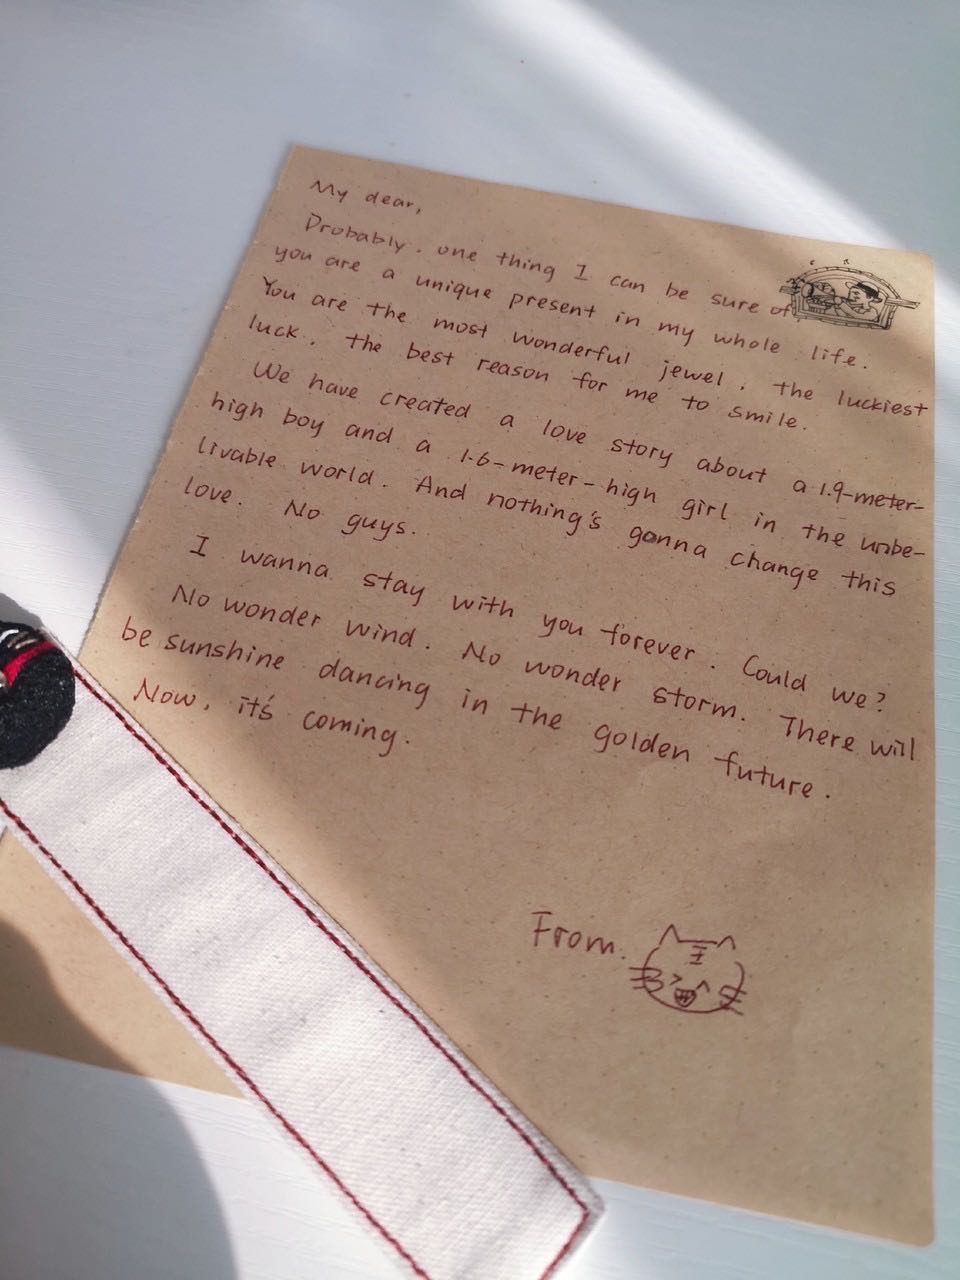 My dear,
Probably, one thing I can be sure of
you are a unique present in my whole life.
You are the most wonderful jewel, the luckiest
luck, the best reason for me to smile.
We have created a love story about a 1.9-meter-
high boy and a 1.6-meter-high girl in the unbe-
livable world. And nothing's gonna change this
love. No guys.
I wanna stay with you forever. Could we?
No wonder wind. No wonder storm. There will
be sunshine dancing in the golden future.
Now, it's coming.
From.